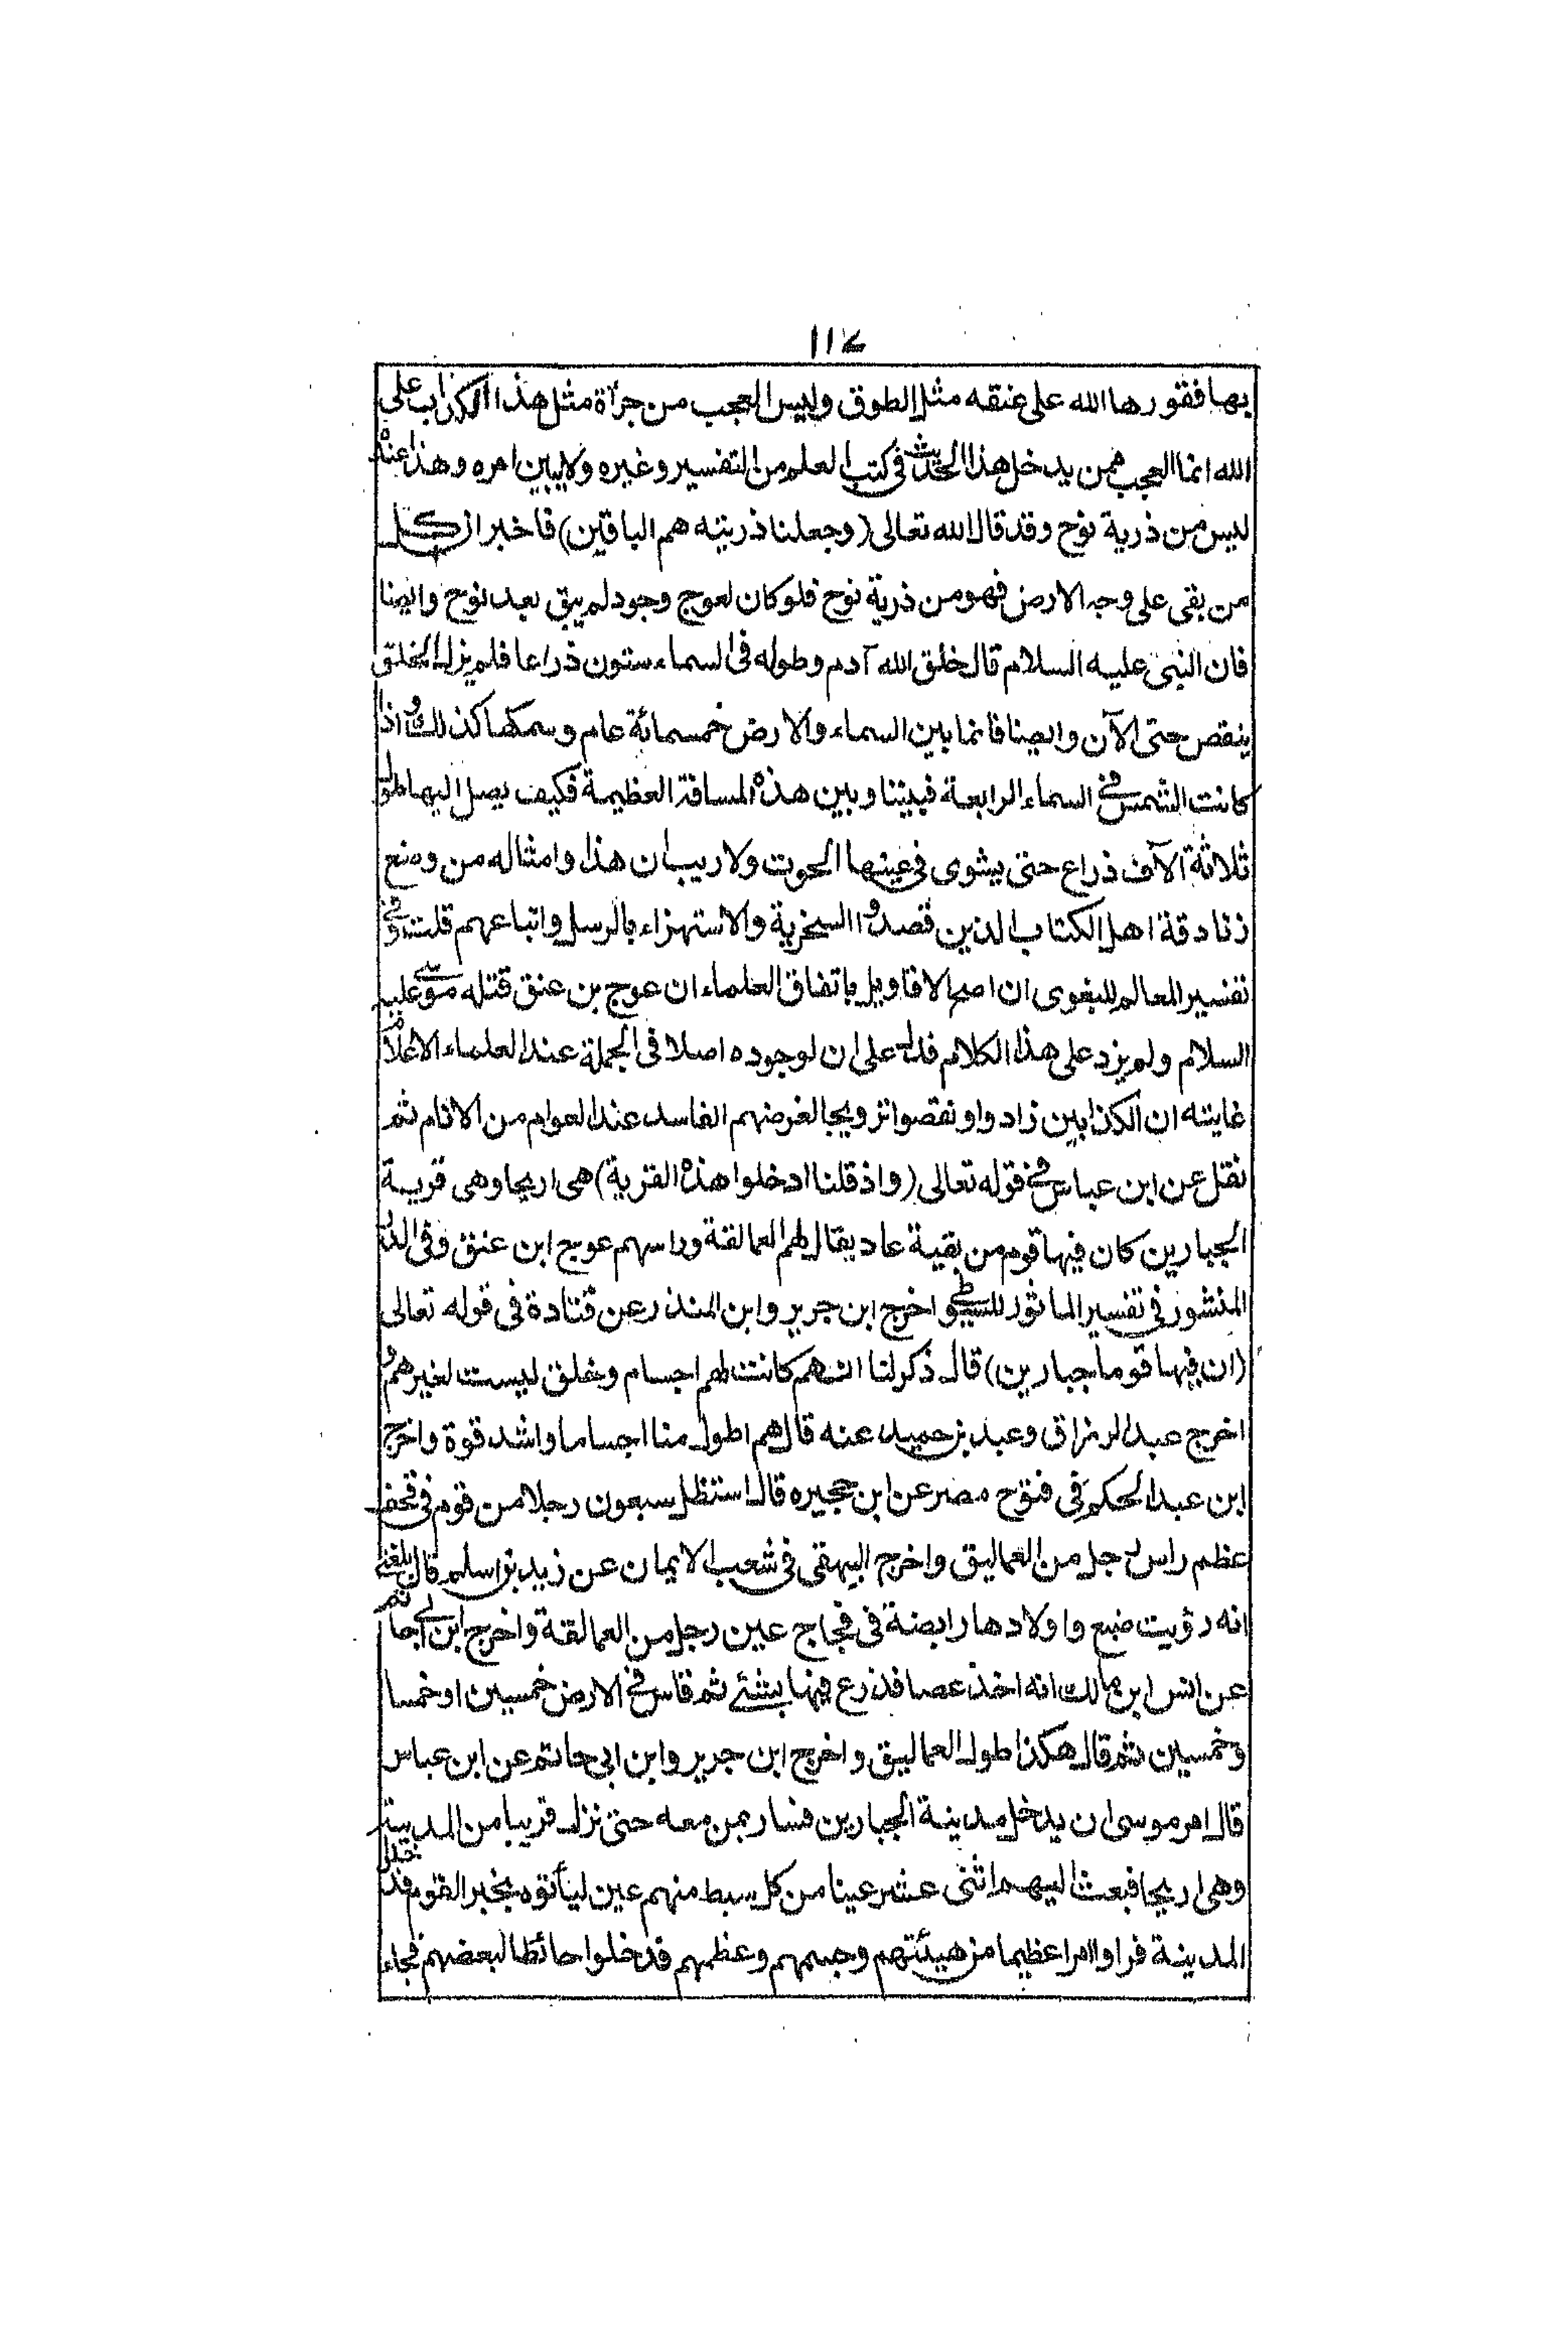 ١١٧
بها فقورها الله على عنقه مثل الطوق وليس العجب من جرأة مثل هذا الكذاب على
الله انما العجب ممن يدخل هذا الحديث فى كتب العلم من التفسير وغيره ولا يبين امره وهذا عندهم
ليس من ذرية نوح وقد قال الله تعالى (وجعلنا ذريته هم الباقين) فاخبر ان كل
من بقى على وجه الارض فهو من ذرية نوح فلو كان لعوج وجود لم يبق بعد نوح وايضا
فان النبى عليه السلام قال خلق الله آدم وطوله فى السماء ستون ذراعا فلم يزل الخلق
ينقص حتى الآن وايضا فانما بين السماء والارض خمسمائة عام وسمكها كذلك واذا
كانت الشمس فى السماء الرابعة فبيننا وبين هذه المسافة العظيمة فكيف يصل اليها طول
ثلاثة آلاف ذراع حتى يشوى فى عينها الحوت ولا ريب ان هذا وامثاله من وضع
زنادقة اهل الكتاب الذين قصدوا السخرية والاستهزاء بالرسل واتباعهم قلت وفى
تفسير المعالم للبغوى ان اصح الاقاويل باتفاق العلماء ان عوج بن عنق قتله موسى عليه
السلام ولم يزد على هذا الكلام فدل على ان لوجوده اصلا فى الجملة عند العلماء الاعلام
غايته ان الكذابين زادوا ونقصوا ترويجا لغرضهم الفاسد عند العوام من الانام ثم
نقل عن ابن عباس فى قوله تعالى (واذ قلنا ادخلوا هذه القرية) هى اريحا وهى قرية
الجبارين كان فيها قوم من بقية عاد يقال لهم العمالقة ورأسهم عوج ابن عنق وفى الدر
المنشور فى تفسير الماثور للسيوطى اخرج ابن جرير وابن المنذر عن قتادة فى قوله تعالى
(ان فيها قوما جبارين) قال ذكر لنا انهم كانت لهم اجسام وخلق ليست لغيرهم و
اخرج عبد الرزاق وعبد بن حميد عنه قال هم اطول منا اجساما واشد قوة واخرج
ابن عبد الحكم فى فتوح مصر عن ابن حجيره قال استظل سبعون رجلا من قوم فى قحف
عظم راس رجل من العماليق واخرج البيهقى فى شعب الايمان عن زيد بن اسلم قال بلغنى
انه رؤيت ضبع واولادها رابضة فى فجاج عين رجل من العمالقة واخرج ابن ابى حاتم
عن انس ابن مالك انه اخذ عصا فذرع فيها بشئ ثم قاس فى الارض خمسين او خمسا
وخمسين ثم قال هكذا طول العماليق واخرج ابن جرير وابن ابى حاتم عن ابن عباس
قال امر موسى ان يدخل مدينة الجبارين فسار بمن معه حتى نزل قريبا من المدينة
وهى اريحا فبعث اليهم اثنى عشر عينا من كل سبط منهم عين ليأتوه بخبر القوم فدخلوا
المدينة فراوا امرا عظيما من هيئتهم وجسمهم وعظمهم فدخلوا حائطا لبعضهم فجاء